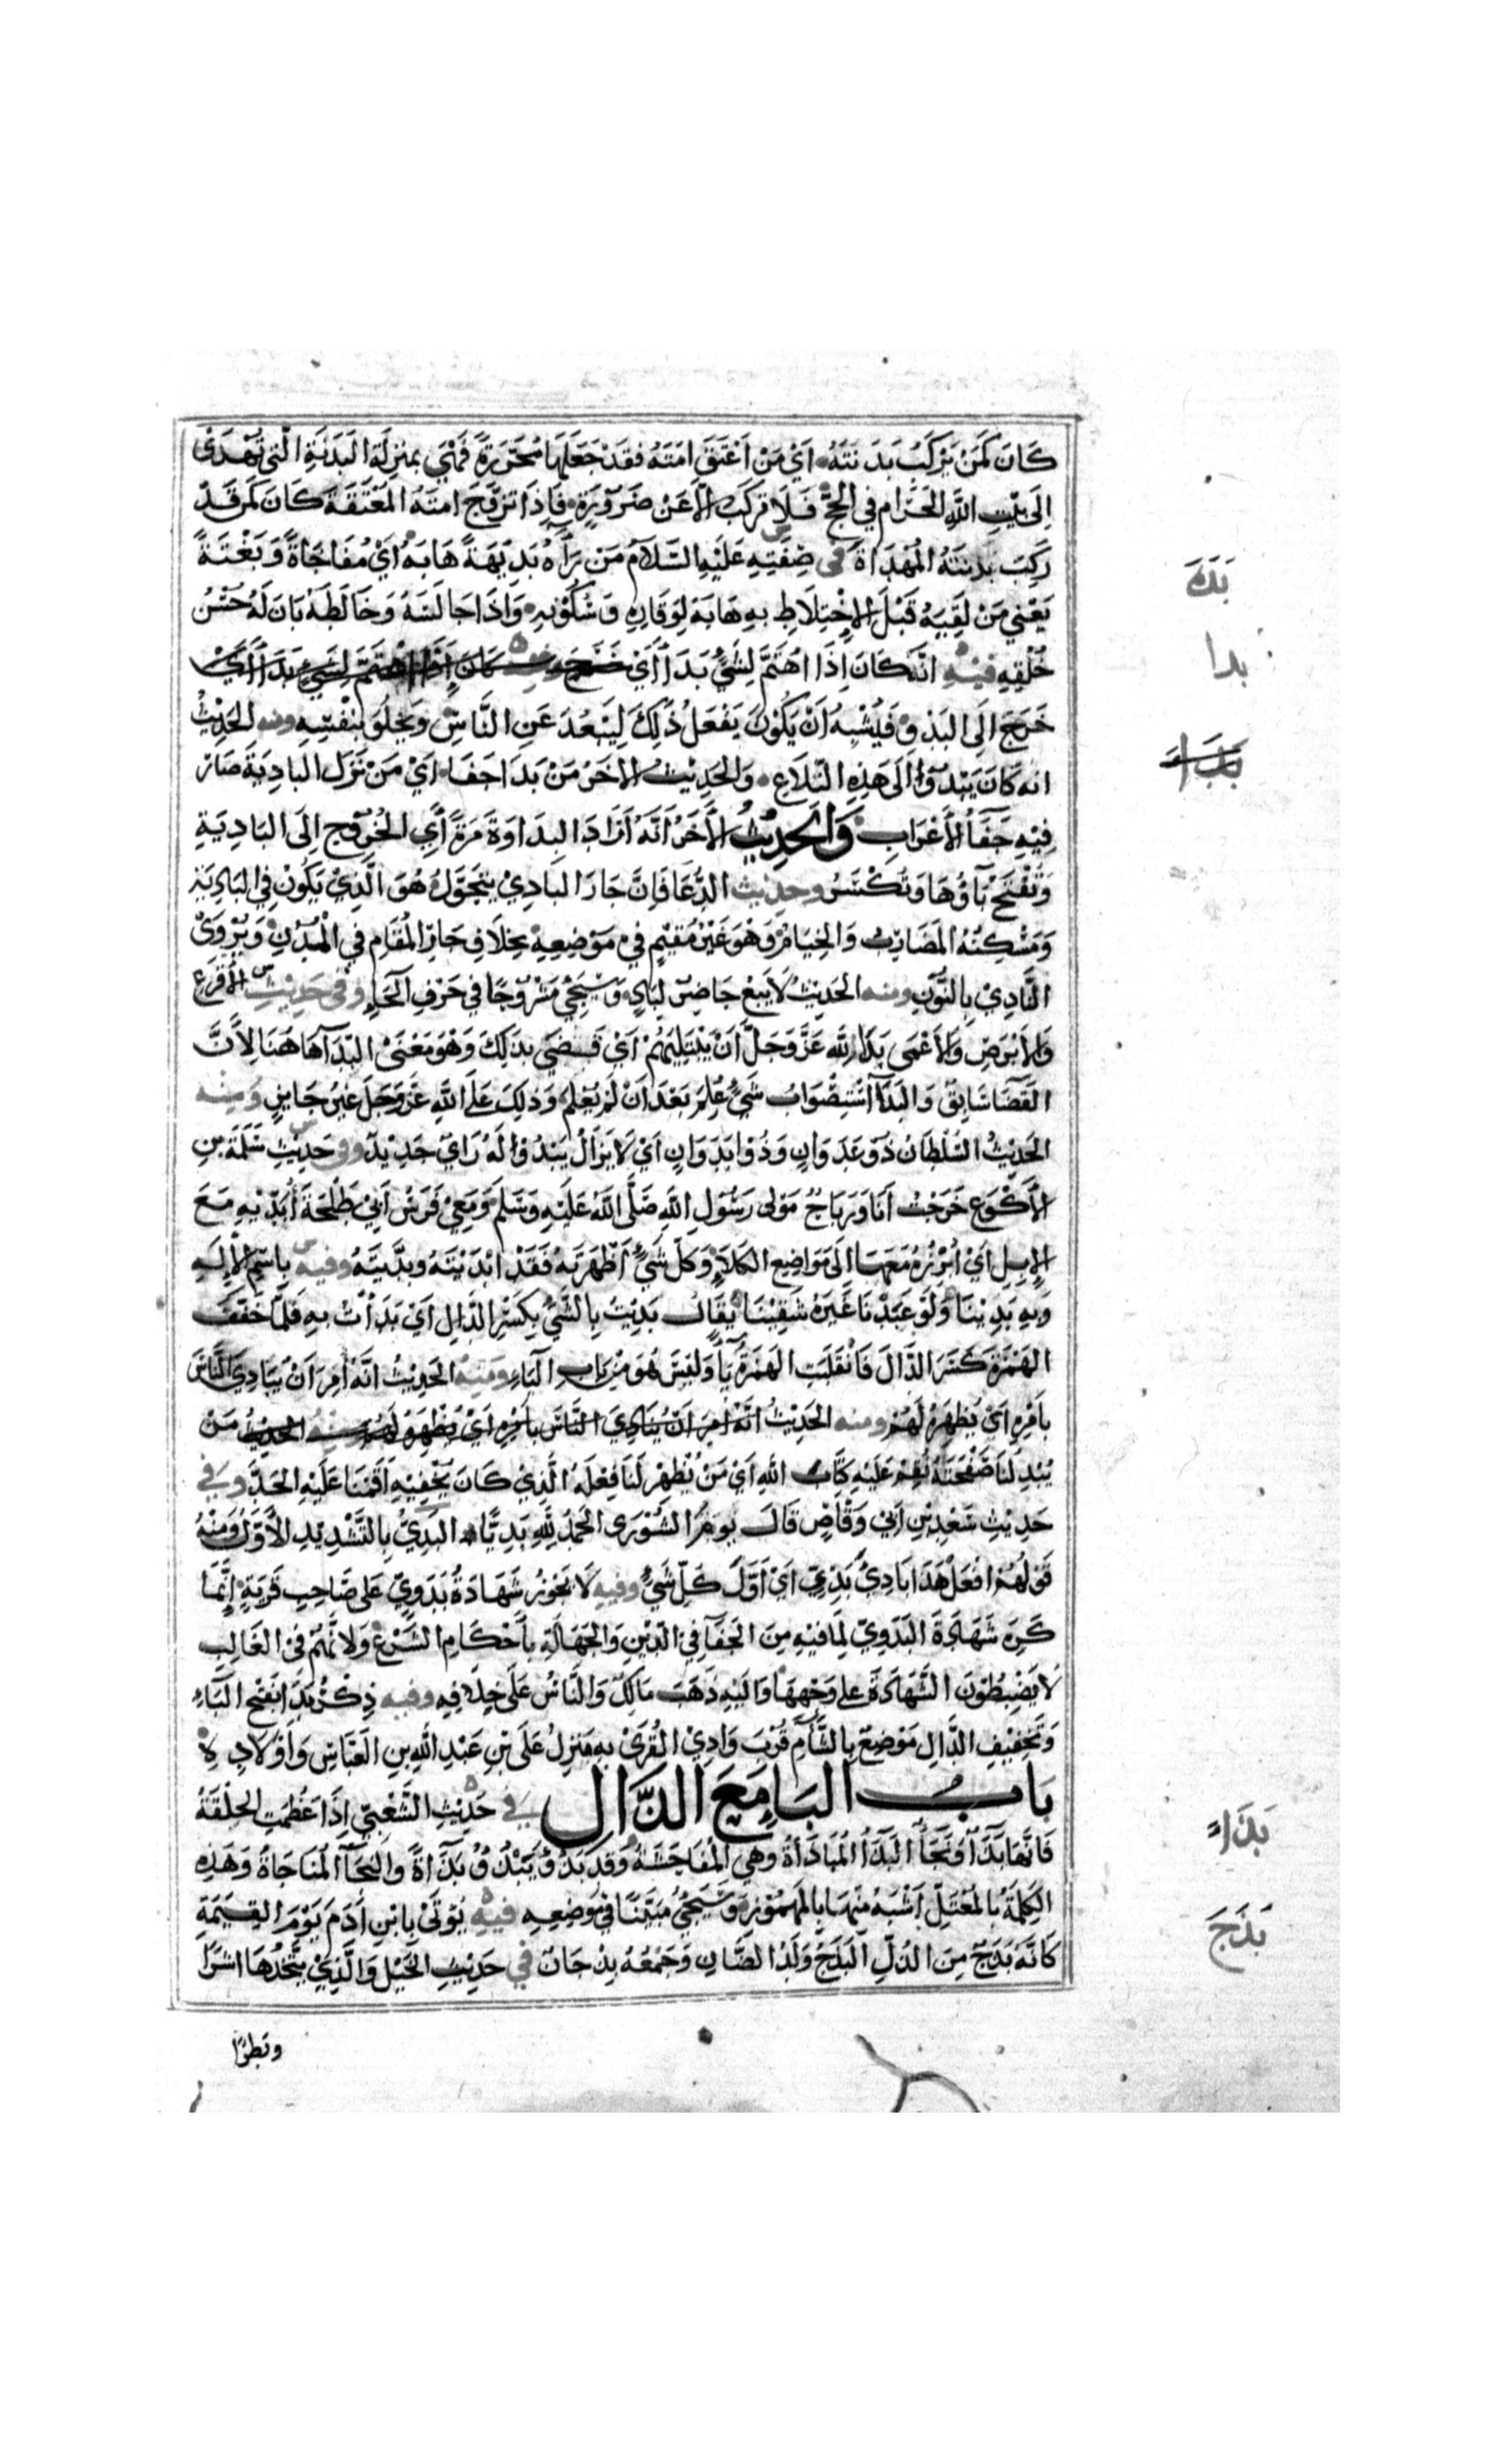 كَانَ كَمَنْ يَرْكَبُ بَدَنَتَهُ اَيْ مَنْ اَعْتَقَ اَمَتَهُ فَقَدْ جَعَلَهَا مُحَرَّرَةً فَهِيَ بِمَنْزِلَةِ الْبَدَنَةِ الَّتِي تُهْدَى
اِلَى بَيْتِ اللّٰهِ الْحَرَامِ فِي الْحَجِّ فَلَا تُرْكَبُ اِلَّا عَنْ ضَرُوْرَةٍ فَاِذَا تَزَوَّجَ امَتَهُ الْمُعْتَقَةَ كَانَ كَمَنْ قَدْ
رَكِبَ بَدَنَتَهُ الْمُهْدَاةَ فى صِفَتِهِ عَلَيْهِ السَّلَامُ مَنْ رَاٰهُ بَدِيْهَةً هَابَهُ اَيْ مُفَاجَاةً وَبَغْتَةً
يَعْنِي مَنْ لَقِيَهُ قَبْلَ الْاِخْتِلَاطِ بِهِ هَابَهُ لِوَقَارِهِ وَسُكُوْنِهِ وَاذَا جَالَسَهُ وَخَالَطَهُ بَانَ لَهُ حُسْنُ
خُلُقِهِ فِيْهِ انَّهُ كَانَ اِذَا اهْتَمَّ لِشَيْءٍ بَدَا اَيْ خَرَجَ كَانَ اِذَا اهْتَمَّ لِشَيْءٍ بَدَا اَيْ
خَرَجَ الَى الْبَدْوِ فَيُشْبِهُ اَنْ يَكُوْنَ يَفْعَلُ ذٰلِكَ لِيَبْعُدَ عَنِ النَّاسِ وَيَخْلُوَ بِنَفْسِهِ ومنه الحَدِيْثُ
انه كَانَ يَبْدُوْا الَى هَذِهِ التِّلَاعِ وَالحَدِيْثُ الاخَرُ مَنْ بَدَا جَفَا اَيْ مَنْ نَزَلَ البادِيَةَ صَارَ
فِيْهِ جَفَاُ الْاَعْرَابِ وَالحَدِيْثُ الْاٰخَرُ اَنَّهُ اَرَادَ البِدَاوَةَ مَرَّةً اَيِ الخُرُوْجِ اِلَى البَادِيَةِ
وَتُفْتَحُ بَاؤُهَا وَتُكْسَرُ وحديث الدُّعَا فَاِنَّ جَارَ البادِيْ يَتَحَوَّلُ هُوَ الَّذِيْ يَكُوْنُ فِي البَادِيَةِ
وَمَسْكِنُهُ المَضَارِبُ وَالخِيَامُ وَهُوَ غَيْرُ مُقِيْمٍ فِيْ مَوْضِعِهِ بِخِلَافِ جَارِ الْمُقَامِ فِي الْمُدُنِ وَيُرْوَى
النَّادِيْ بِالنُّوْنِ ومنه الحَدِيْثُ لَا يَبِعْ حَاضِرٌ لِبَادٍ وَسَيَجِيْءُ مَشْرُوْحًا فِي حَرْفِ الْحَاءِ وَفى حَدِيْثِ الْاَقْرَعِ
وَالْاَبْرَصِ وَالْاَعْمَى بَدَا لِلّٰهِ عَزَّ وَجَلَّ اَنْ يَبْتَلِيَهُمْ اَيْ قَضَى بِذٰلِكَ وَهُوَ مَعْنَى البَدَآ هَاهُنَا لِاَنَّ
القَضَآ سَابِقٌ وَالبَدَآ اسْتِصْوَابُ شَيْءٍ عُلِمَ بَعْدَ اَنْ لَمْ يُعْلَمْ وَذٰلِكَ عَلَى اللّٰهِ عَزَّ وَجَلَّ غَيْرُ جَايِزٍ وَمِنْه
الحَدِيْثُ السُّلْطَانُ ذُوْ عَدَوَانٍ وَذُوْا بَدَوَانٍ اَيْ لَا يَزَالُ يَبْدُوْا لَهُ رَايٌ جَدِيْدٌ وفى حَدِيْثِ سَلَمَةَ بنِ
الْاَكْوَعِ خَرَجْتُ اَنَا وَرَبَاحٌ مَوْلى رَسُوْلِ اللّٰهِ صَلَّى اللّٰهُ عَلَيْهِ وَسَلَّمَ وَمَعِيْ فَرَسُ اَبِيْ طَلْحَةَ اُبَدِّيْهِ مَعَ
الْاِبِلِ اَيْ اُبْرِزُهُ مَعَهَا اِلَى مَوَاضِعِ الكَلَاءِ وَكُلُّ شَيْءٍ اَظْهَرْتَهُ فَقَدْ ابْدَيْتَهُ وبَدَّيْتَهُ وفيه بِاسْمِ الْاِلٰهِ
وَبِهِ بَدِيْنَا وَلَوْ عَبَدْنَا غَيْرَهُ شَقِيْنَا يُقَالُ بَدِيْتُ بِالشَّيْءِ بِكَسْرِ الدَّالِ اَيْ بَدَاْتُ بِهِ فَلَمَّا خَفَّفَ
الهَمْزَةَ كَسَرَ الدَّالَ فَانْقَلَبَتِ الهَمْزَةُ يَآءً وَلَيْسَ هُوَ مِنْ بَابِ اليَاءِ ومنه الحَدِيْثُ انَّهُ اُمِرَ اَنْ يُبَادِيَ النَّاسَ
بِاَمْرِهِ اَيْ يُظْهِرَهُ لَهُمْ ومنه الحَدِيْثُ انَّهُ اُمِرَ اَنْ يُبَادِيَ النَّاسَ بِاَمْرِهِ اَيْ يُظْهِرَهُ لَهُمْ ومنه الحديث مَنْ
يُبْدِ لَنَا صَفْحَتَهُ نُقِمْ عَلَيْهِ كِتَابَ اللّٰهِ اَيْ مَنْ يُظْهِرْ لَنَا فِعْلَهُ الَّذِيْ كَانَ يُخْفِيْهِ اَقَمْنَا عَلَيْهِ الحَدَّ وفى
حَدِيْثِ سَعْدِ بْنِ اَبِيْ وَقَّاصٍ قَالَ يَوْمَ الشُّوْرَى الْحَمْدُ لِلّٰهِ بَدِيًّا البَدِيُّ بِالتَّشْدِيْدِ الْاَوَّلُ وَمِنْهُ
قَوْلُهُمْ افْعَلْ هٰذَا بَادِيْ بَدِيٍّ اَيْ اَوَّلَ كُلِّ شَيْءٍ وفيه لَا تَجُوْزُ شَهَادَةُ بَدَوِيٍّ عَلى صَاحِبِ قَرْيَةٍ اِنَّمَا
كَرِهَ شَهَادَةَ البَدَوِيِّ لِمَا فِيْهِ مِنَ الجَفَآ فِي الدِّيْنِ وَالجَهَالَةِ بِاَحْكَامِ الشَّرْعِ وَلِانَّهُمْ فِيْ الغَالِبِ
لَا يَضْبِطُوْنَ الشَّهَادَةَ عَلى وَجْهِهَا وَالَيْهِ ذَهَبَ مَالِكٌ وَالنَّاسُ عَلَى خِلَافِهِ وفيه ذِكْرُ بَدَا بِفَتْحِ البَاءِ
وَتَخْفِيْفِ الدَّالِ مَوْضِعٌ بِالشَّامِ قُرْبَ وَادِيْ القُرَى بِهِ مَنْزِلُ عَلَى بْنِ عَبْدِ اللّٰهِ بنِ العَبَّاسِ وَاَوْلَادِهِ
بَابُ البَا مَعَ الذَّالِ فى حَدِيْثِ الشَّعْبِيِّ اِذَا عَظُمَتِ الحَلْقَةُ
فَاِنَّمَا بَذَآ اَوْ نَجَآ البَذَآ الْمُبَاذَاةُ وَهِيَ الْمُفَاحَشَةُ وَقَدْ بَذُوَ يَبْذُوْ بَذَاةً وَالنِّجَآ الْمُنَاجَاةُ وَهٰذِهِ
الكَلِمَةُ بِالْمُعْتَلِّ اَشْبَهُ مِنْهَا بِالْمَهْمُوْزِ وَسَيَجِيْءُ مُبَيَّنًا فِيْ مَوْضِعِهِ فيه يُؤْتَى بِابْنِ اٰدَمَ يَوْمَ القِيٰمَةِ
كَانَّهُ بَذَجٌ مِنَ الذُّلِّ الْبَذَجُ وَلَدُ الضَّانِ وَجَمْعُهُ بِذْجَانٌ فى حَدِيْثِ الخَيْلِ وَالَّذِيْ يَتَّخِذُهَا اَشَرًا
وبَطَرًا
بَدَهَ
بدا
بَذَاءَ
بَذَجَ